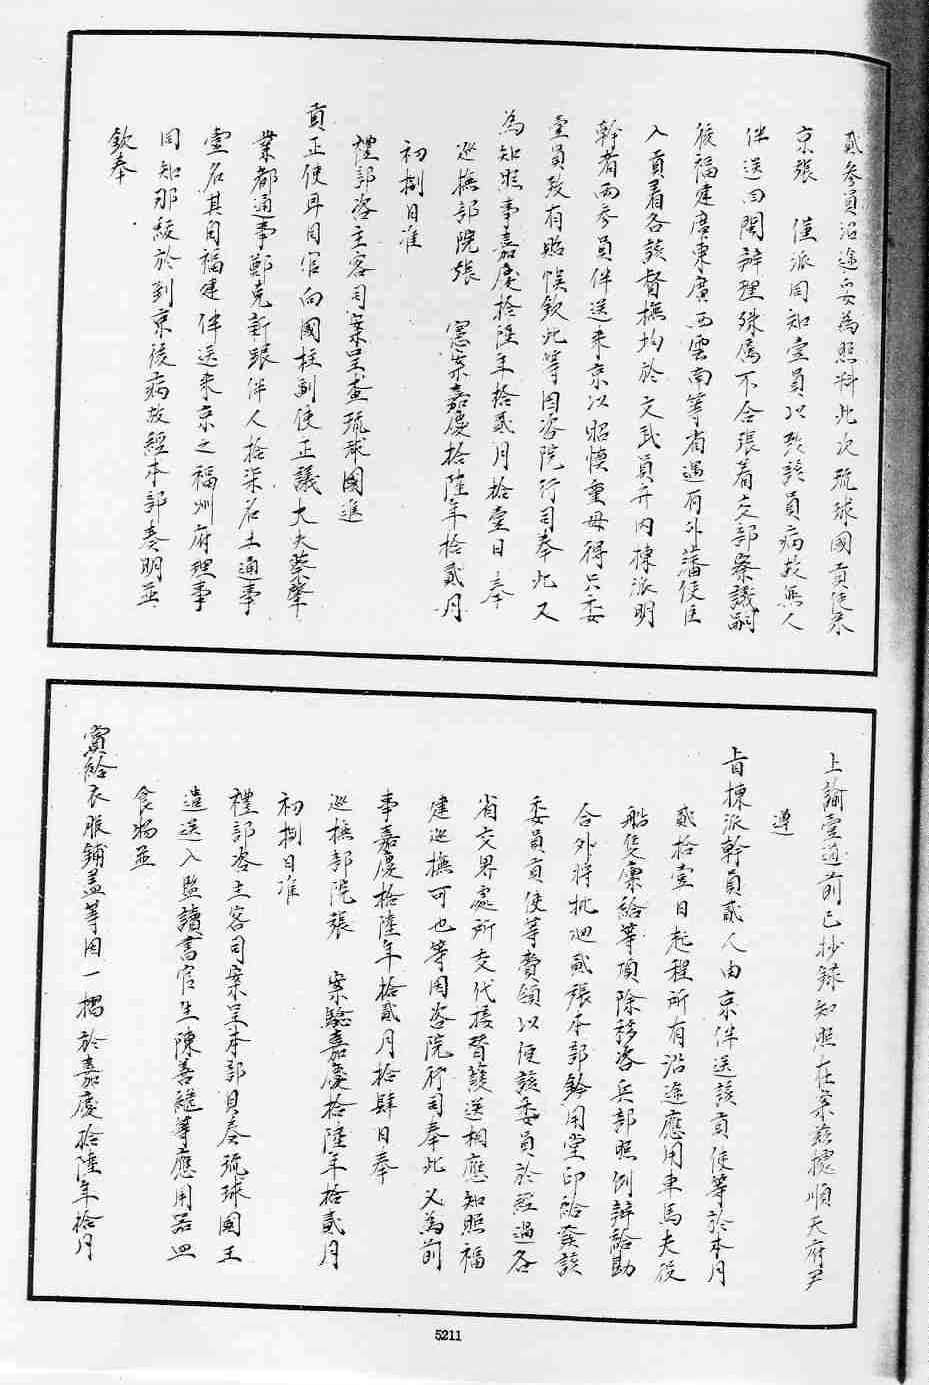 貳參員沿途妥為照料此次琉球國貢使來
京張　僅派同知壹員以致該員病故無人
伴送回閩辦理殊屬不合張着交部察議嗣
後福建廣東廣西雲南等省遇有外藩使臣
入貢着各該督撫均於文武員弁內揀派明
幹者兩參員伴送來京以昭慎重毋得只委
壹員致有貽悞欽此等因咨院行司奉此又
為知照事嘉慶拾陸年拾貳月拾壹日奉
巡撫部院張　憲案嘉慶拾陸年拾貳月
初捌日准
禮部咨主客司案呈查琉球國進
貢正使耳目官向國柱副使正議大夫蔡肇
業都通事鄭克新跟伴人拾柒名土通事
壹名其自福建伴送來京之福州府理事
同知那綾於到京後病故經本部奏明並
欽奉
上諭壹道前已抄錄知照在案茲據順天府尹
遵
旨揀派幹員貳人由京伴送該貢使等於本月
貳拾壹日起程所有沿途應用車馬夫役
船隻廩給等項除移咨兵部照例辦給勘
合外將批迴貳張本部鈐用堂印給發該
委員貢使等賫領以便該委員於經過各
省交界處所交代接替護送相應知照福
建巡撫可也等因咨院行司奉此又為前
事嘉慶拾陸年拾貳月拾肆日奉
巡撫部院張　案驗嘉慶拾陸年拾貳月
初捌日准
禮部咨主客司案呈本部具奏琉球國王
遣送入監讀書官生陳善繼等應用器皿
食物並
賞給衣服鋪蓋等因一摺於嘉慶拾陸年拾月
5211